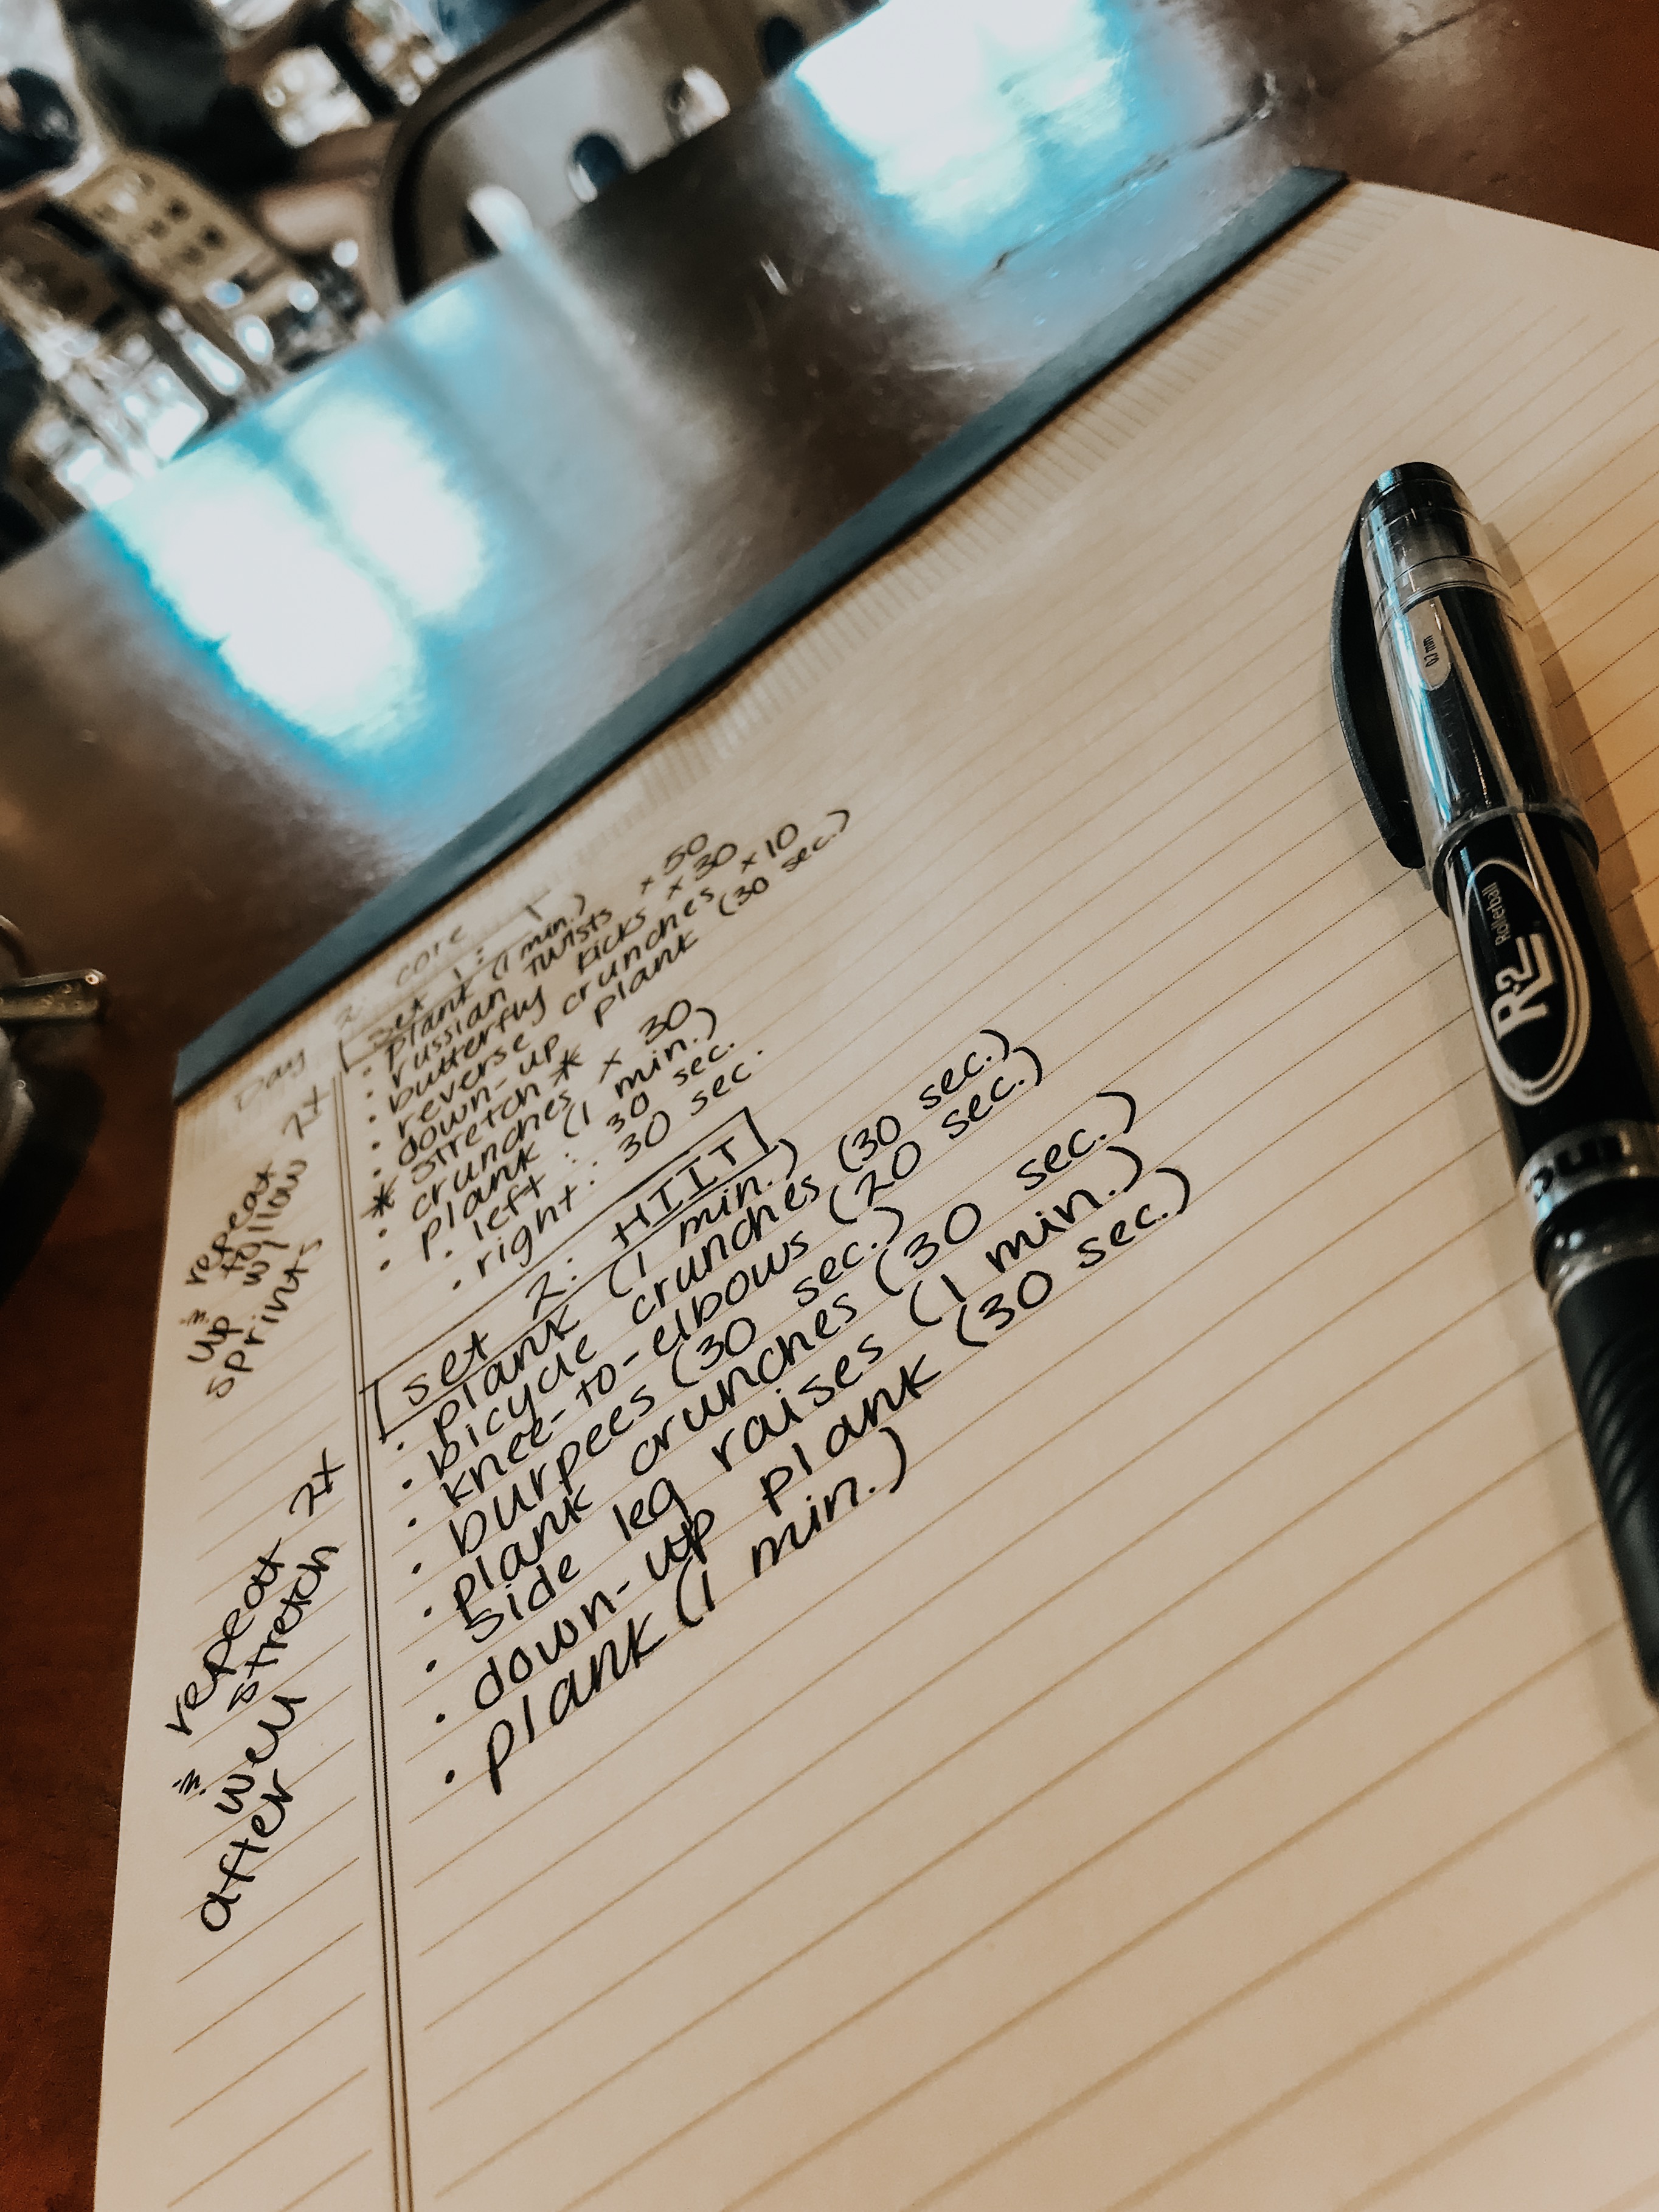 Day 2: core
Set 1:
• plank (1 min.)
• russian twists x 50
• butterfly kicks x 30
• reverse crunches x 10
• down-up plank (30 sec.)
* stretch *
• crunches x 30
• plank (1 min.)
• left: 30 sec.
• right: 30 sec.
repeat 2x
follow
up w/
sprints
set 2: HIIT
• plank (1 min.)
• bicycle crunches (30 sec.)
• knee-to-elbows (20 sec.)
• burpees (30 sec.)
• plank crunches (30 sec.)
• side leg raises (1 min.)
• down-up plank (30 sec.)
• plank (1 min.)
repeat 2x
stretch
well
after
0.7 mm
R2
Rollerball
inc